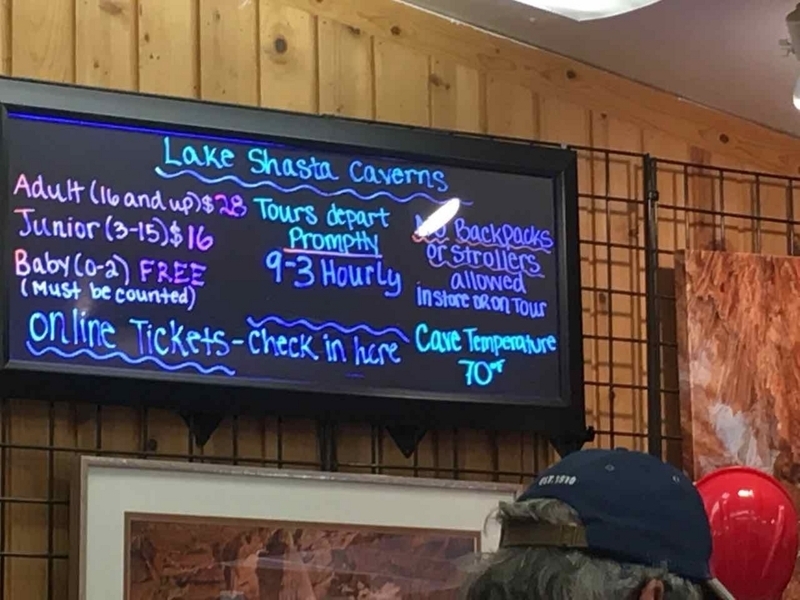 Lake Shasta Caverns
Adult (16 and up) $28
Junior (3-15) $16
Baby (0-2) FREE
(Must be counted)
Tours depart
Promptly
9-3 Hourly
No Backpacks
or Strollers
allowed
in store or on Tour
Online Tickets - check in here
Cave Temperature
70°F
EST. 1810